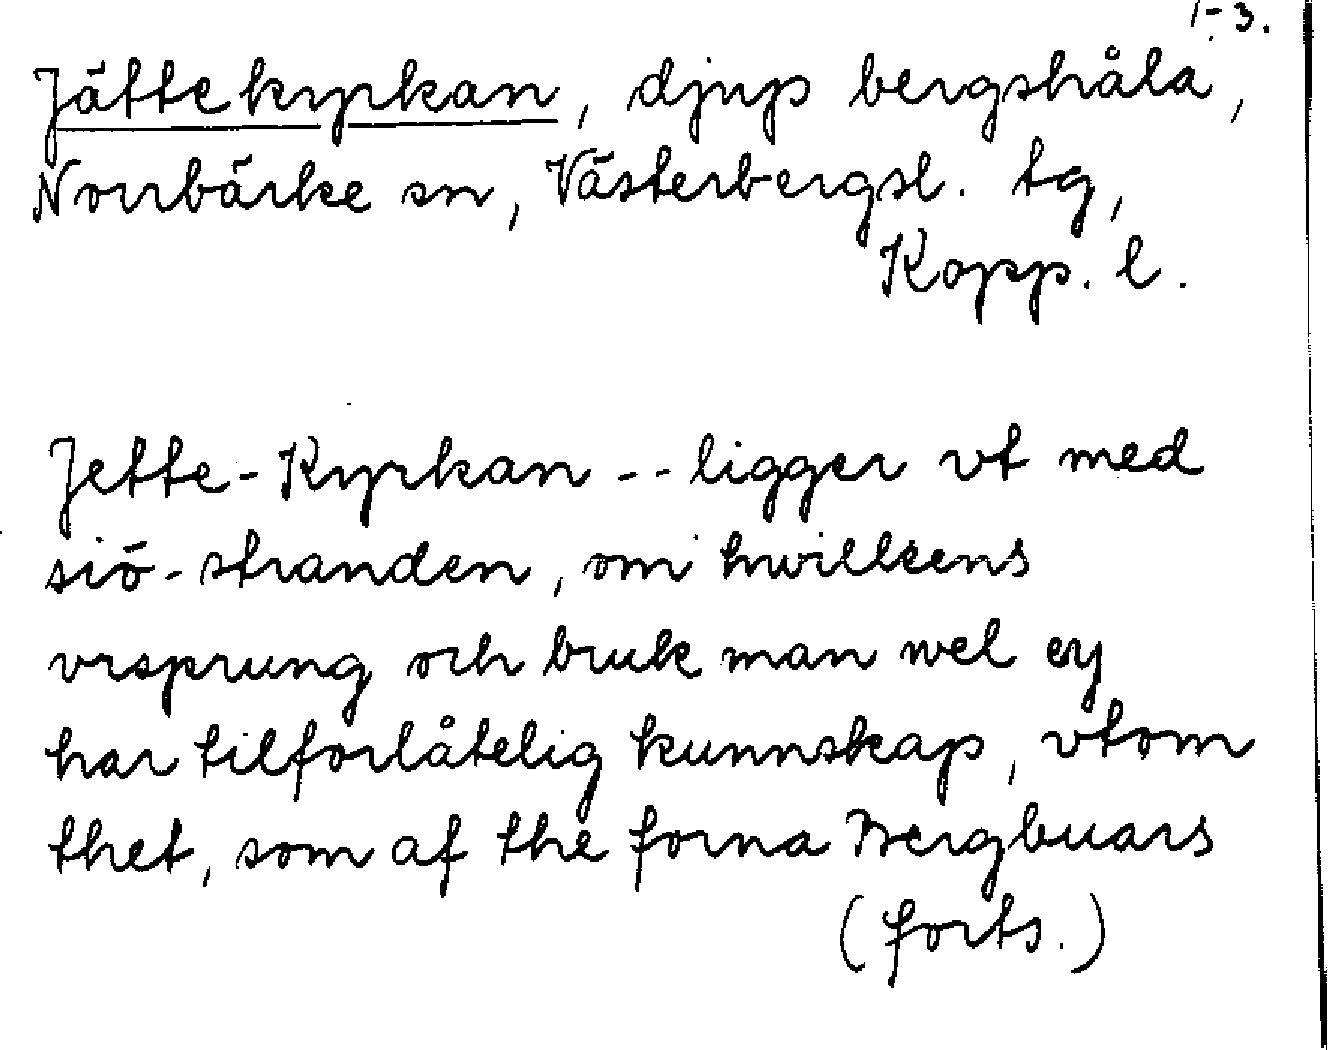 1-3.
Jättekyrkan, djup bergshåla,
Norrbärke sn, Västerbergsl. tg,
Kopp. l.
Jette-Kyrkan -- ligger vt med
siö-stranden, om hwilkens
vrsprung och bruk man wel ey
har tilforlåtelig kunnskap, vtom
thet, som af the forna Bergbuars
(forts.)